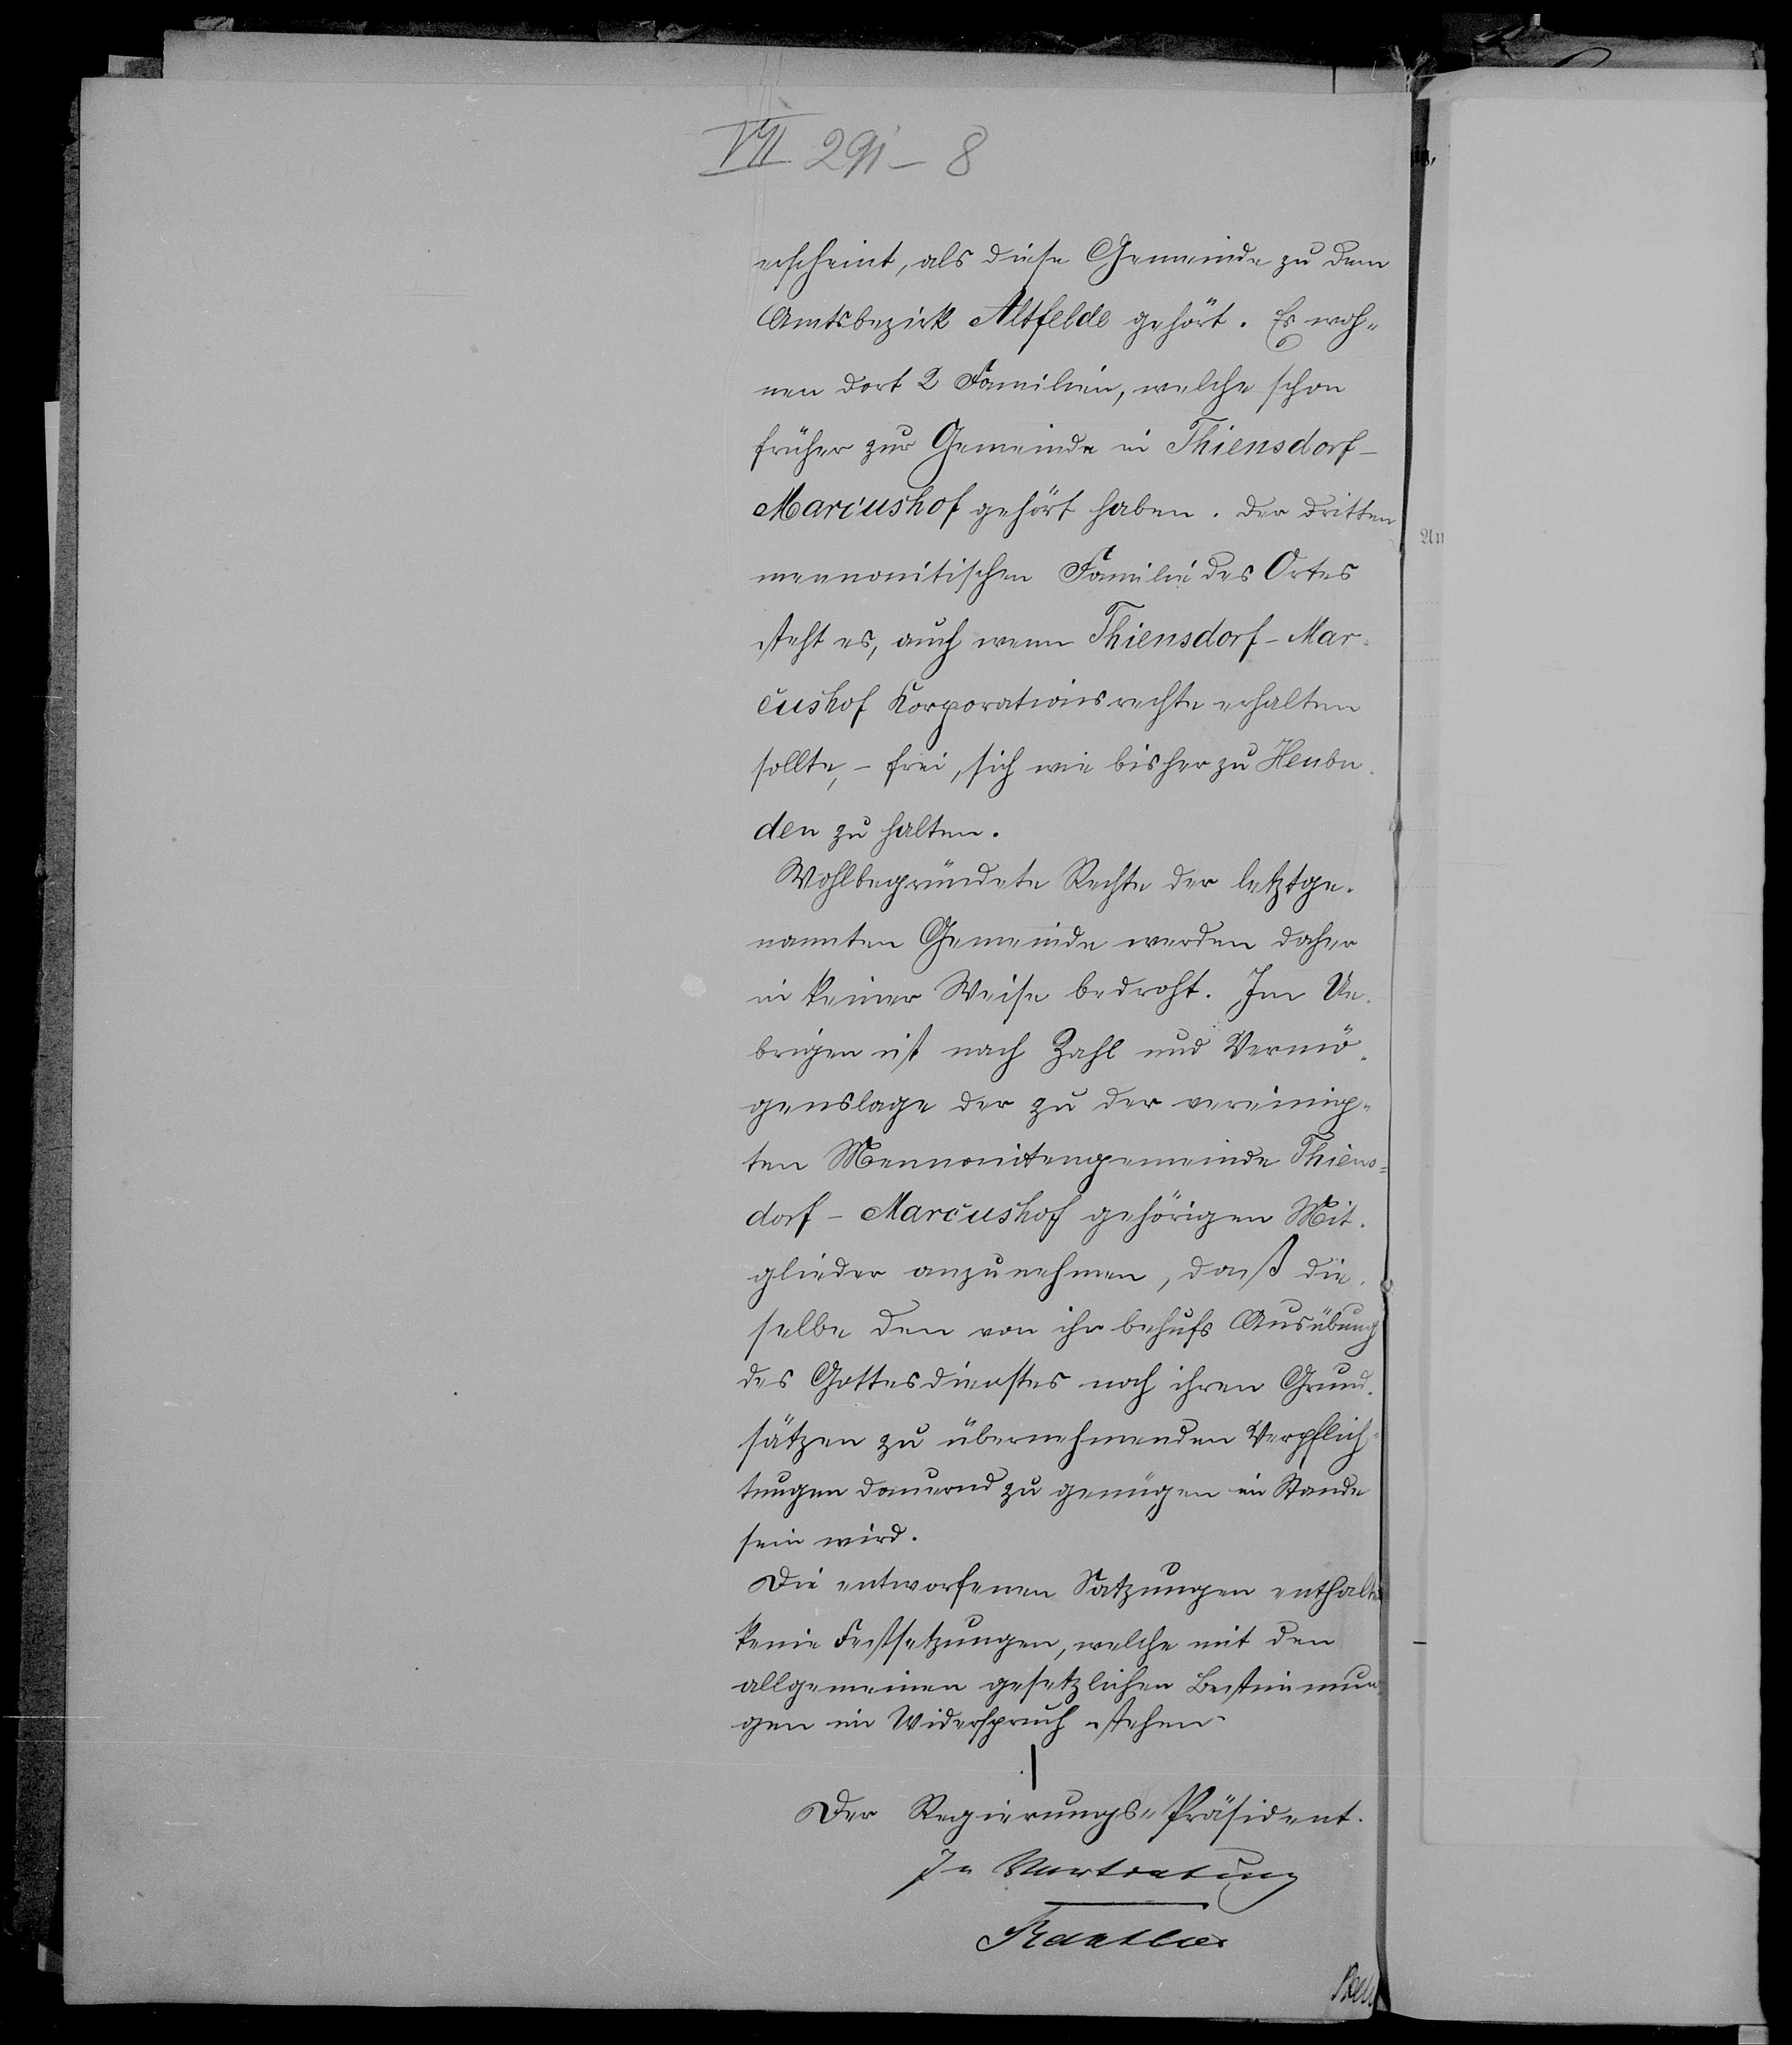 VII 291-8
erscheint, als diese Gemeinde zu dem
Amtsbezirk Altfelde gehört. Es woh-
nen dort 2 Familien, welche schon
früher zur Gemeinde in Thiensdorf-
Marcushof gehört haben. Der dritten
mennonitischen Familie des Ortes
steht es, auch wenn Thiensdorf-Mar-
cushof Korporationsrechte erhalten
sollte, - frei, sich wie bisher zu Heubu-
den zu halten.
Wohlbegründete Rechte der letztge-
nannten Gemeinde werden daher
in keiner Weise bedroht. Im Ue-
brigen ist nach Zahl und Vermö-
genslage der zu der vereinig-
ten Mennonitengemeinde Thiens-
dorf-Marcushof gehörigen Mit-
glieder anzunehmen, daß die-
selbe den von ihr behufs Ausübung
des Gottesdienstes nach ihren Grund-
sätzen zu übernehmenden Verpflich-
tungen dauernd zu genügen im Stande
sein wird.
Die entworfenen Satzungen enthalten
keine Festsetzungen, welche mit den
allgemeinen gesetzlichen Bestimmun-
gen im Widerspruch stehen.
Der Regierungs-Präsident.
In Vertretung